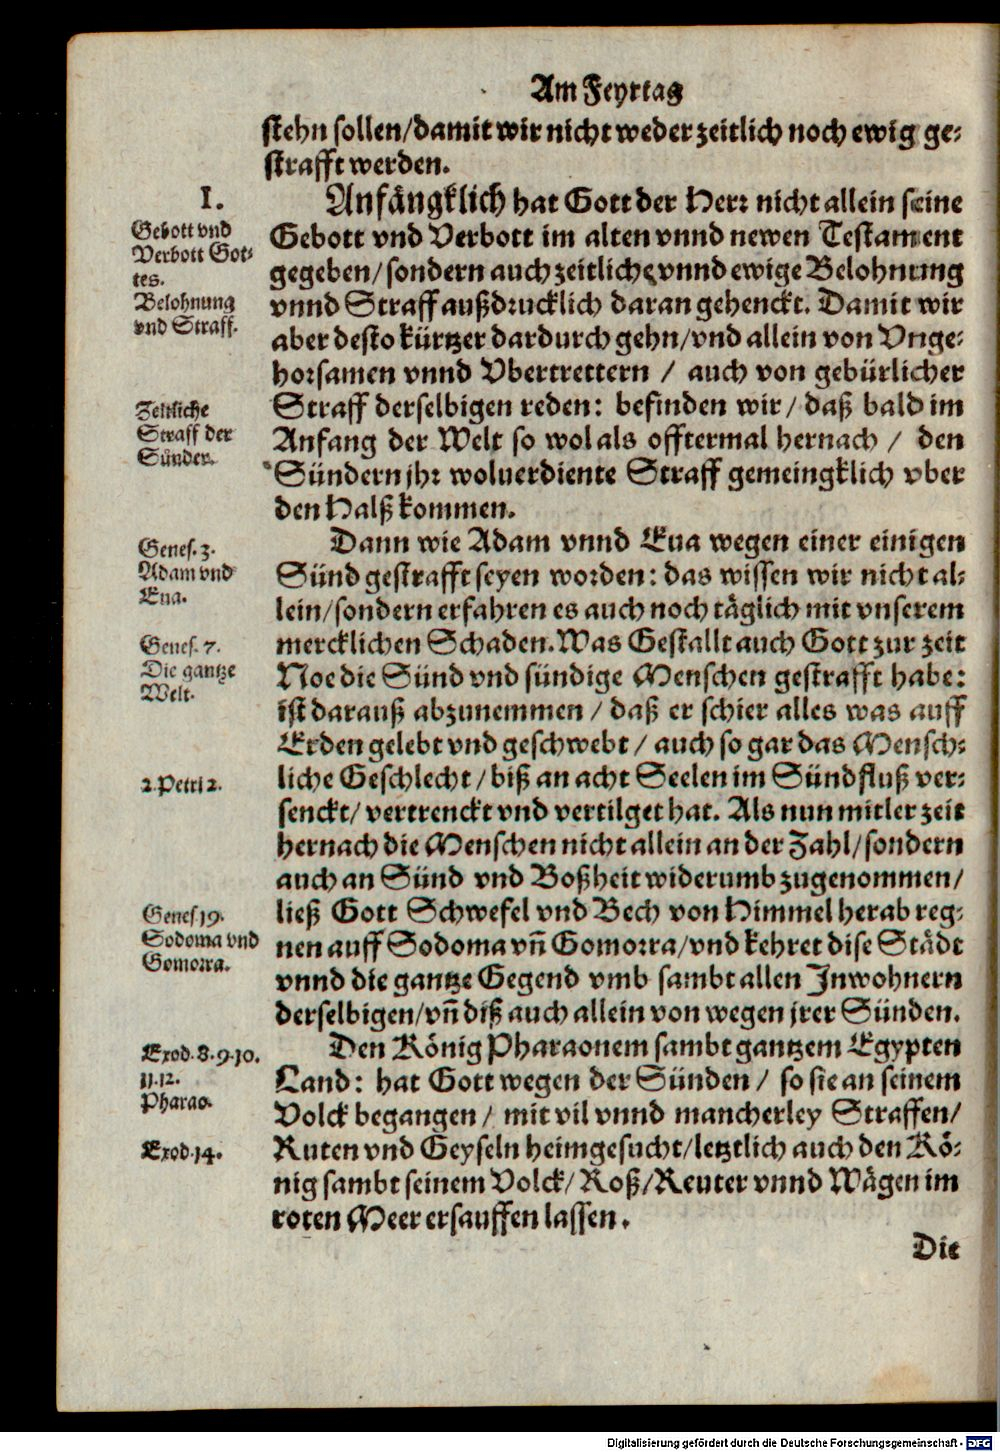 Am Feyrtag
stehn sollen/damit wir nicht weder zeitlich noch ewig ge-
strafft werden.
I.
Anfängklich hat Gott der Herr nicht allein seine
Gebott vnd
Verbott Got-
tes.
Belohnung
vnd Straff.
Gebott vnd Verbott im alten vnnd newen Testament
gegeben/sondern auch zeitliche vnnd ewige Belohnung
vnnd Straff außdrucklich daran gehenckt. Damit wir
aber desto kürtzer dardurch gehn/vnd allein von Vnge-
horsamen vnnd Vbertrettern / auch von gebürlicher
Zeitliche
Straff der
Sünder.
Straff derselbigen reden: befinden wir/ daß bald im
Anfang der Welt so wol als offtermal hernach / den
Sündern jhr woluerdiente Straff gemeingklich vber
den Halß kommen.
Genes. 3.
Adam vnd
Eua.
Dann wie Adam vnnd Eua wegen einer einigen
Sünd gestrafft seyen worden: das wissen wir nicht al-
lein/sondern erfahren es auch noch täglich mit vnserem
Genes. 7.
Die gantze
Welt.
mercklichen Schaden. Was Gestallt auch Gott zur zeit
Noe die Sünd vnd sündige Menschen gestrafft habe:
ist darauß abzunemmen / daß er schier alles was auff
Erden gelebt vnd geschwebt / auch so gar das Mensch-
2. Petri 2.
liche Geschlecht / biß an acht Seelen im Sündfluß ver-
senckt/ vertrenckt vnd vertilget hat. Als nun mitler zeit
hernach die Menschen nicht allein an der Zahl/sondern
auch an Sünd vnd Boßheit widerumb zugenommen/
Genes 19.
Sodoma vnd
Gomorra.
ließ Gott Schwefel vnd Bech von Himmel herab reg-
nen auff Sodoma vñ Gomorra/vnd kehret dise Städt
vnnd die gantze Gegend vmb sambt allen Inwohnern
derselbigen/vñ diß auch allein von wegen jrer Sünden.
Exod. 8. 9. 10.
11. 12.
Pharao.
Den König Pharaonem sambt gantzem Egypten
Land: hat Gott wegen der Sünden / so sie an seinem
Volck begangen / mit vil vnnd mancherley Straffen/
Exod. 14.
Ruten vnd Geyseln heimgesucht/letztlich auch den Kö-
nig sambt seinem Volck/ Roß/Reuter vnnd Wägen im
roten Meer ersauffen lassen.
Die
Digitalisierung gefördert durch die Deutsche Forschungsgemeinschaft - DFG